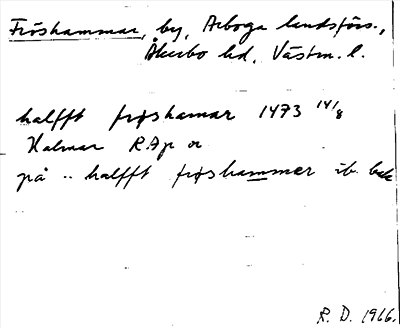 Fröshammar, by, Arboga landsförs.,
Åkerbo hd, Västm. l.
halfft frøshamar 1473 14/8
Kalmar RAp or
på .. halfft frøshammer ib. bak
R. D. 1966.